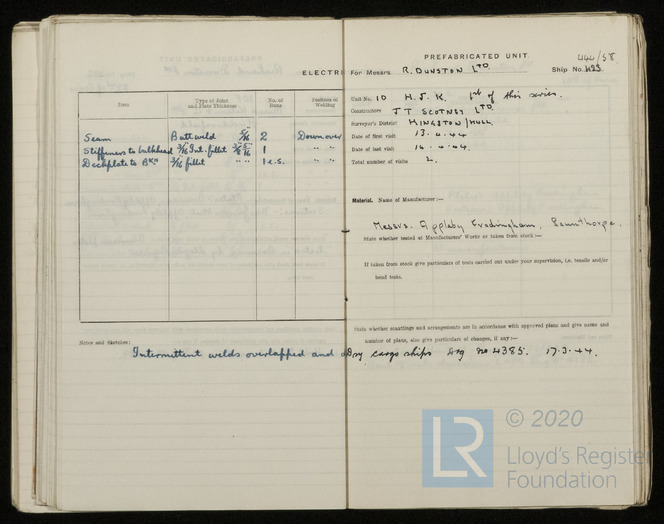 ELECTR
Item
Type of Joint and Plate Thickness
No. of Runs
Position of Welding
Seam Butt weld 5/16" 2 Down over
Stiffeners to bulkhead 3/16 Int. fillet 1 " "
Deckplate to Bkhd 3/16 fillet " " 1 e.s. " "
Notes and Sketches:
Intermittent welds overlapped and
PREFABRICATED UNIT
440/58
For Messrs. R. DUNSTON LTD
Ship No.
Unit No. 10 H.J.K. 1st of this series.
Constructors J T SCOTNEY LTD
Surveyor's District KINGSTON/HULL.
Date of first visit 13.4.44
Date of last visit 14.4.44
Total number of visits 2.
Material. Name of Manufacturer:—
Messrs. Appleby Frodingham, Scunthorpe.
State whether tested at Manufacturers' Works or taken from stock:—
If taken from stock give particulars of tests carried out under your supervision, i.e. tensile and/or
bend tests.
State whether scantlings and arrangements are in accordance with approved plans and give name and
number of plans, also give particulars of changes, if any:—
Dry cargo ships Drg no 4385. 17.3.44.
LR
© 2020
Lloyd's Register
Foundation